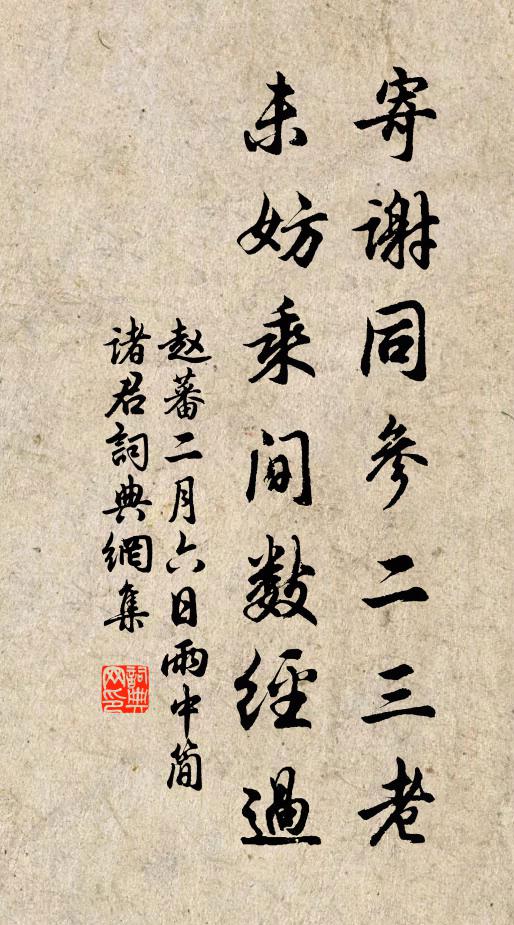 寄谢同参二三老
未妨乘间数经过
赵蕃二月六日雨中简
诸君词典網集
詞典网印